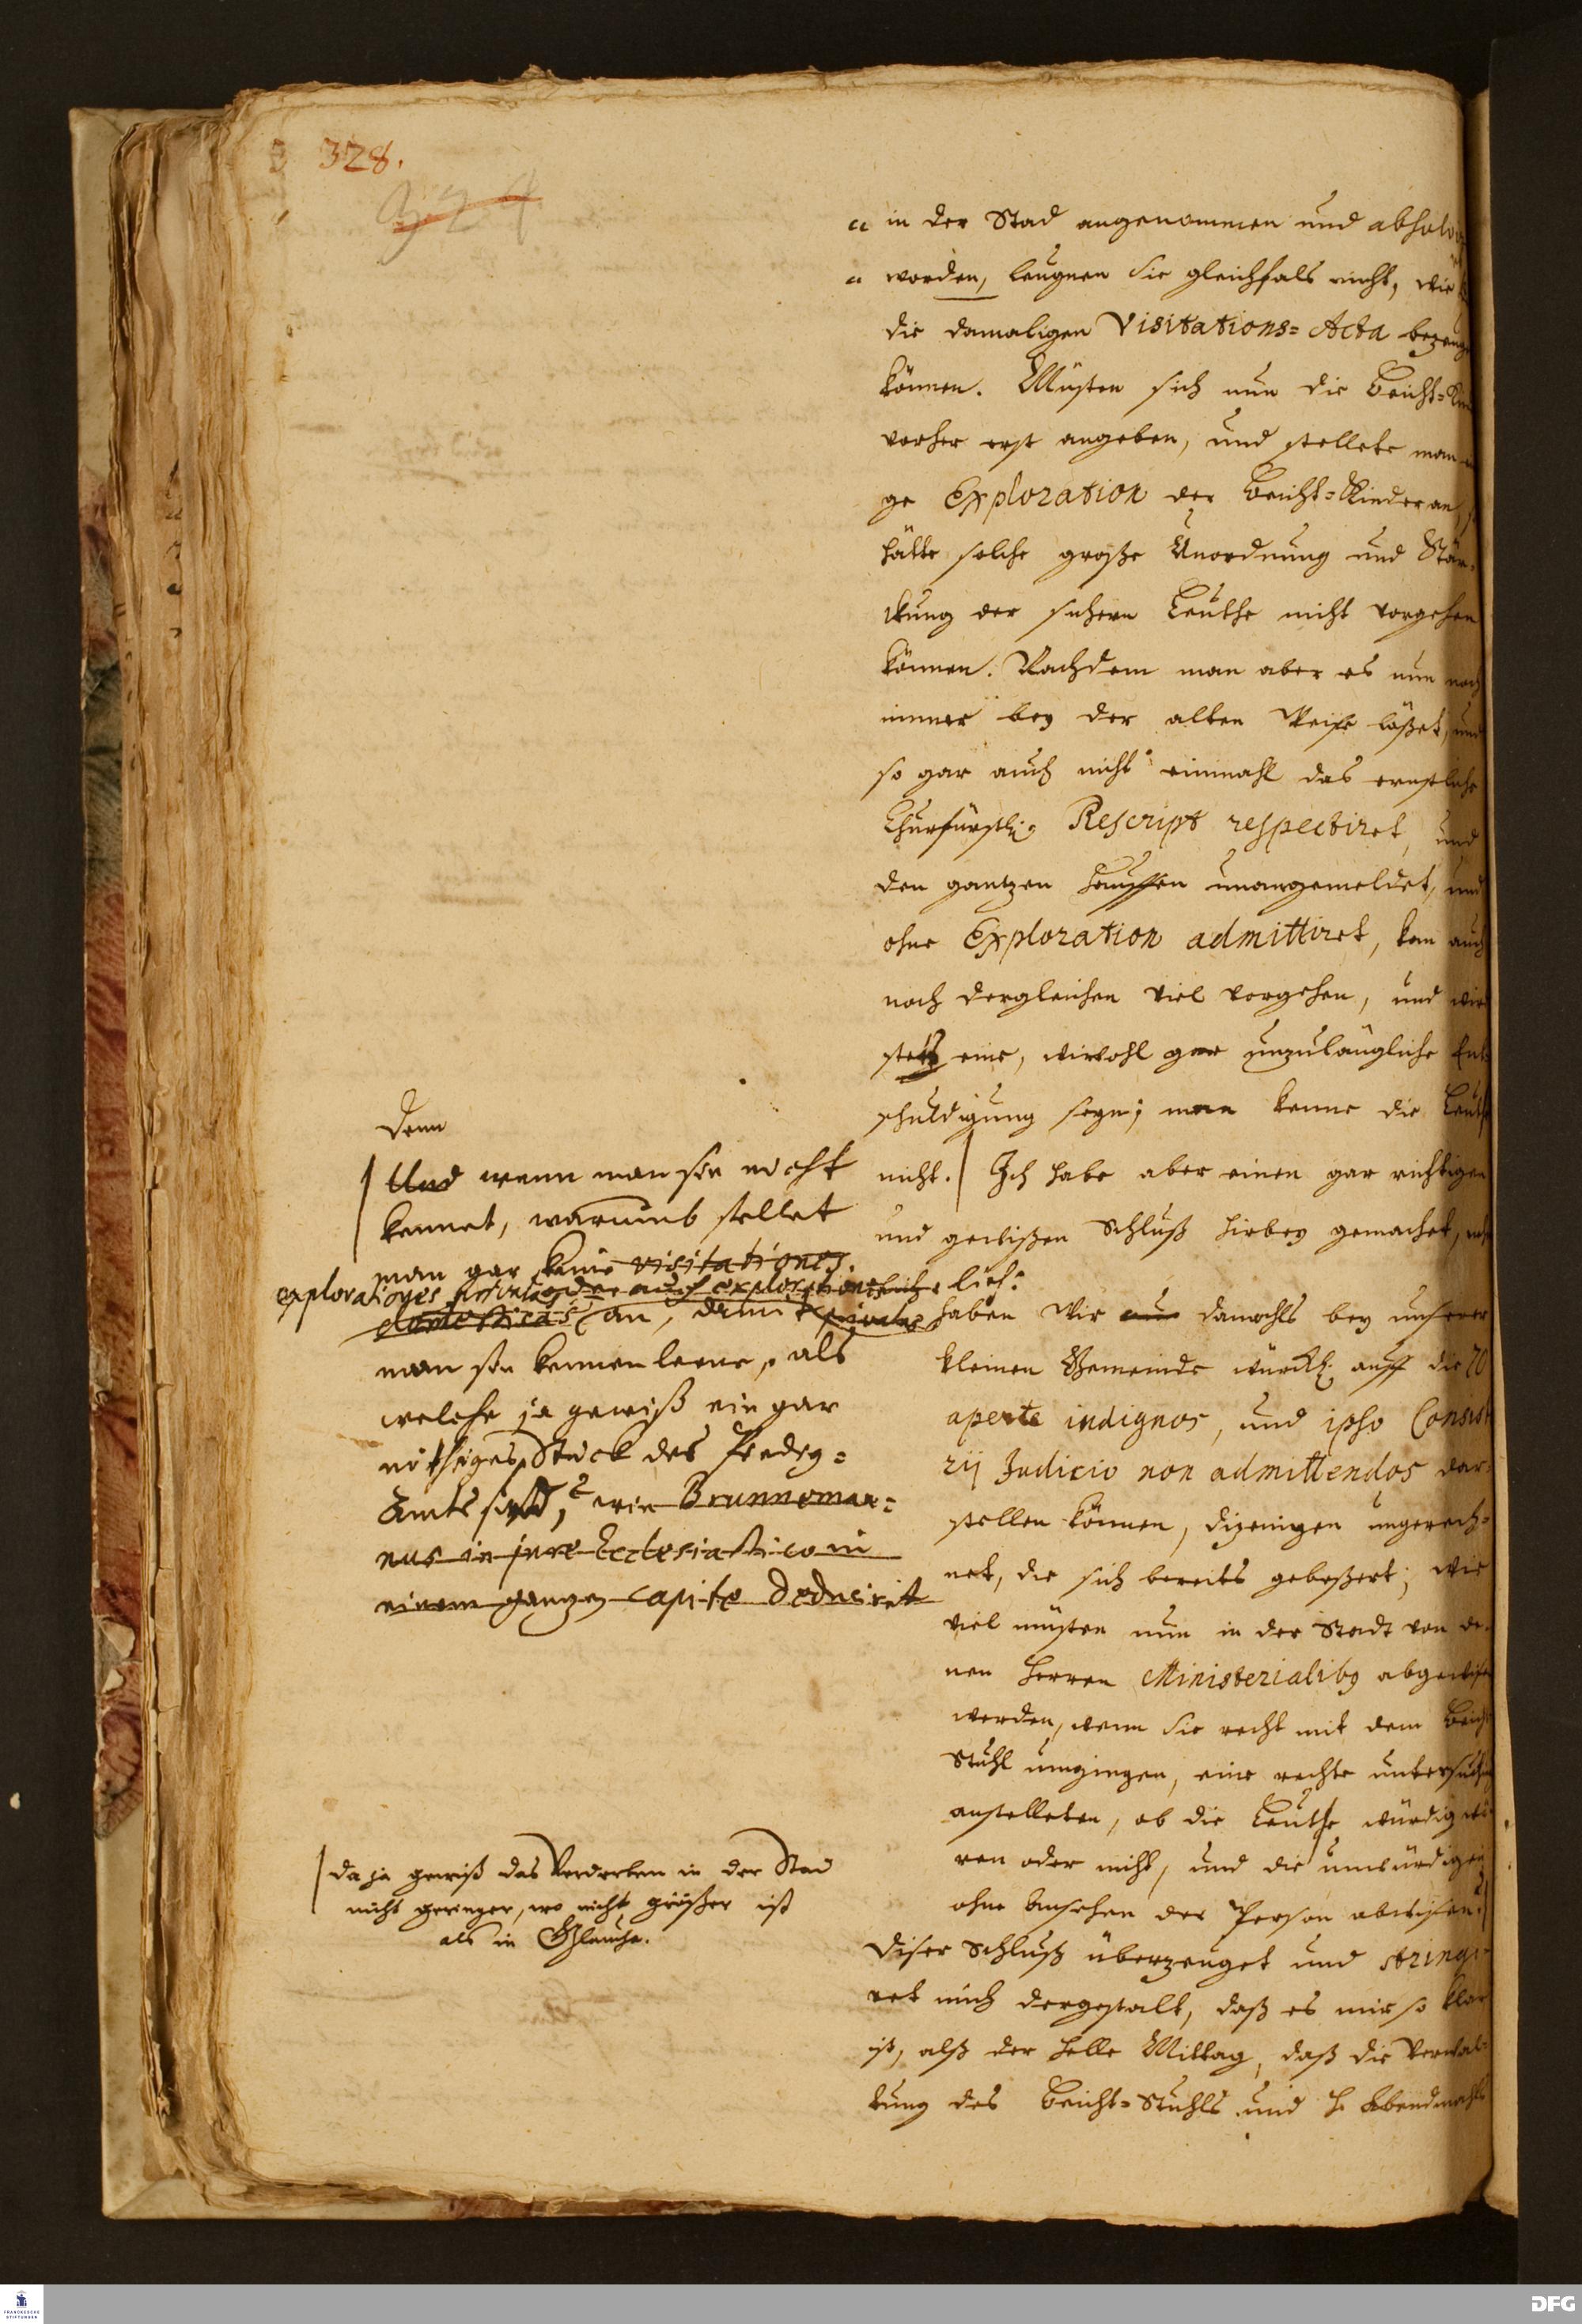 328.
324
a in der Stad angenommen und absolvi
a worden, leugnen sie gleichfals nicht, wie
die damaligen Visitations= Acta bezeug
können. Müsten sich nun die Beicht=Kin
vorher erst angeben, und stellete man
ge Exploration der Beicht=Kinder an,
hätte solche große Unordnung und Stär=
ckung der sichern Leuthe nicht vorgehen
können. Nachdem man aber es nun noch
immer bey der alten Weise läßet, und
so gar auch nicht einmahl das ernstliche
Churfürstl. Rescript respectiret, und
den gantzen Hauffen unangemeldet, und
ohne Exploration admittiret, kan auch
noch dergleichen viel vorgehen, und wird
stets eine, wiewohl gar unzulängliche Ent=
schuldigung seyn; man kenne die Leuthe
nicht. Ich habe aber einen gar richtigen
und gewißen Schluß hirbey gemachet,
lich:
haben wir damahls bey unserer
kleinen Gemeinde würckl. auff die 70
aperte indignos, und ipso Consisto
rij Judicio non admittendos dar=
stellen können, dijenigen ungerech=
net, die sich bereits gebeßert; wie
viel müsten nun in der Stadt von de=
nen Herren Ministerialibg abgewisen
werden, wenn sie recht mit dem Beicht
Stuhl umgingen, eine rechte untersuchung
anstelleten, ob die Leuthe würdig wä=
ren oder nicht, und die unwürdigen
ohne Ansehen der Person abwisen?
Diser Schluß überzeuget und stringi=
ret mich dergestalt, daß es mir so klar
ist, alß der helle Mittag, daß die Verwal=
tung des Beicht=Stuhls und H. Abendmahls
Denn
Und wenn man sie nicht
kennet, warumb stellet
man gar keine visitationes.
explorationes oder auch explorationes
domesticas an, damit privatas
man sie kennen lerne, als
welche ja gewiß ein gar
nöthiges Stück des Predig=
Amts sind, wie Brunneman=
nus in jure Ecclesiastico in
einem gantzen capite deduciret
da ja gewiß das Verderben in der Stad
nicht geringer, wo nicht größer ist
als in Glaucha.
FRANCKESCHE
STIFTUNGEN
DFG